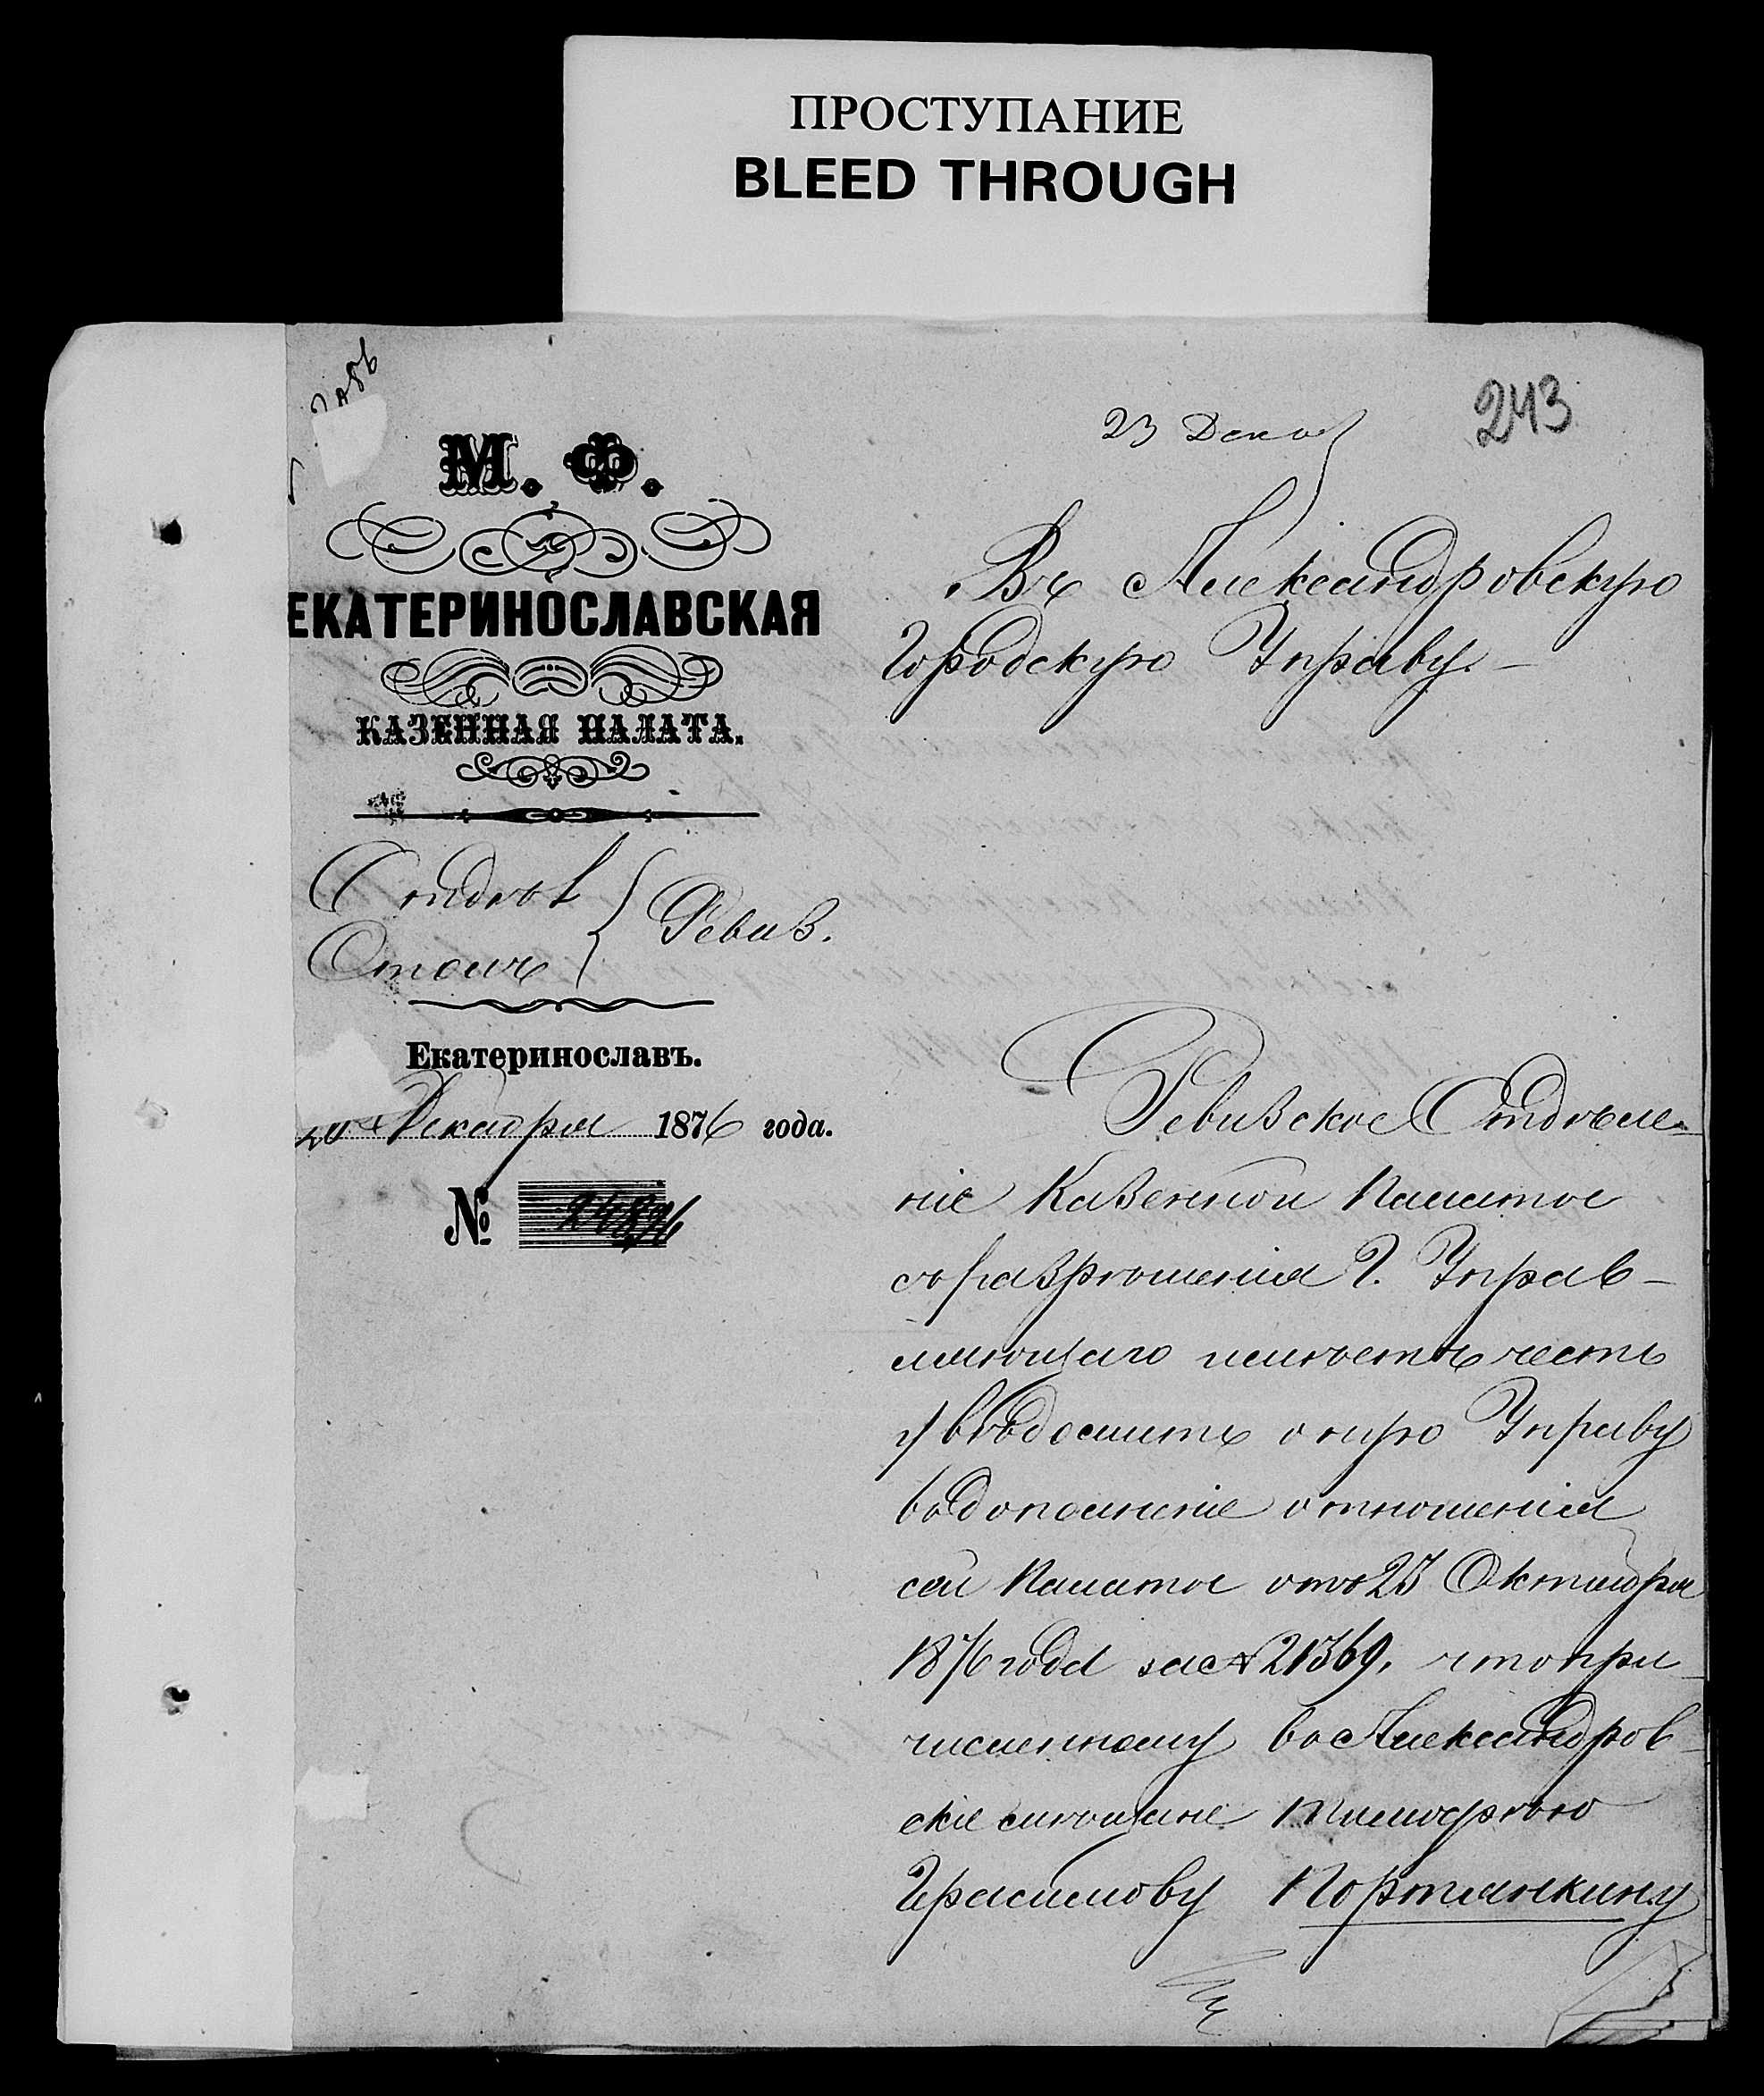 ПРОСТУПАНИЕ
BLEED THROUGH
243
23 Декаб
М. Ф.
ЕКАТЕРИНОСЛАВСКАЯ
КАЗЕННАЯ ПАЛАТА.
Отдѣл
Столъ
Ревиз.
Екатеринославъ.
20 Декабря 1876 года.
№
Въ Александровскую
Городскую Управу.
Ревизское Отдѣле-
ніе Казенной Палаты
съ разрѣшенія Г. Управ-
ляющаго имѣетъ честь
увѣдомить оную Управу
въ дополненіе отношенія
сей Палаты отъ 25 Октября
1876 года за № 21369, что при-
численному въ Александров-
скіе мѣщане Тимофѣю
Герасимову Портянкину